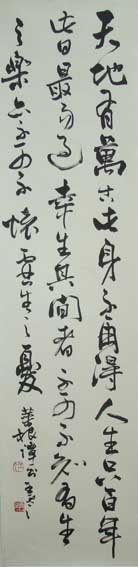 天地有萬古此身不再得人生只百年
此日最易過幸生其間者不可不知有生
之樂亦不可不懷虛生之憂